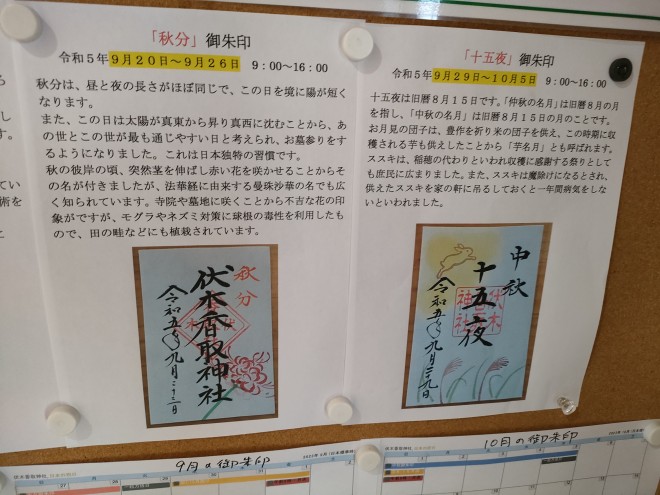 「秋分」御朱印
令和5年9月20日～9月26日 9:00～16:00
秋分は、昼と夜の長さがほぼ同じで、この日を境に陽が短く
なります。
また、この日は太陽が真東から昇り真西に沈むことから、あ
の世とこの世が最も通じやすい日と考えられ、お墓参りをす
るようになりました。これは日本独特の習慣です。
秋の彼岸の頃、突然茎を伸ばし赤い花を咲かせることからそ
の名が付きましたが、法華経に由来する曼珠沙華の名でも広
く知られています。寺院や墓地に咲くことから不吉な花の印
象がですが、モグラやネズミ対策に球根の毒性を利用したも
ので、田の畦などにも植栽されています。
秋分
伏木香取神社
令和五年九月二十三日
「十五夜」御朱印
令和5年9月29日～10月5日 9:00～16:00
十五夜は旧暦8月15日です。「仲秋の名月」は旧暦8月の月
を指し、「中秋の名月」は旧暦8月15日の月のことです。
お月見の団子は、豊作を祈り米の団子を供え、この時期に収
穫される芋も供えしたことから「芋名月」とも呼ばれます。
ススキは、稲穂の代わりといわれ収穫に感謝する祭りとして
も庶民に広まりました。また、ススキは魔除けになるとされ、
供えたススキを家の軒に吊るしておくと一年間病気をしな
いといわれました。
中秋
十五夜
令和五年九月二十九日
9月の御朱印
10月の御朱印